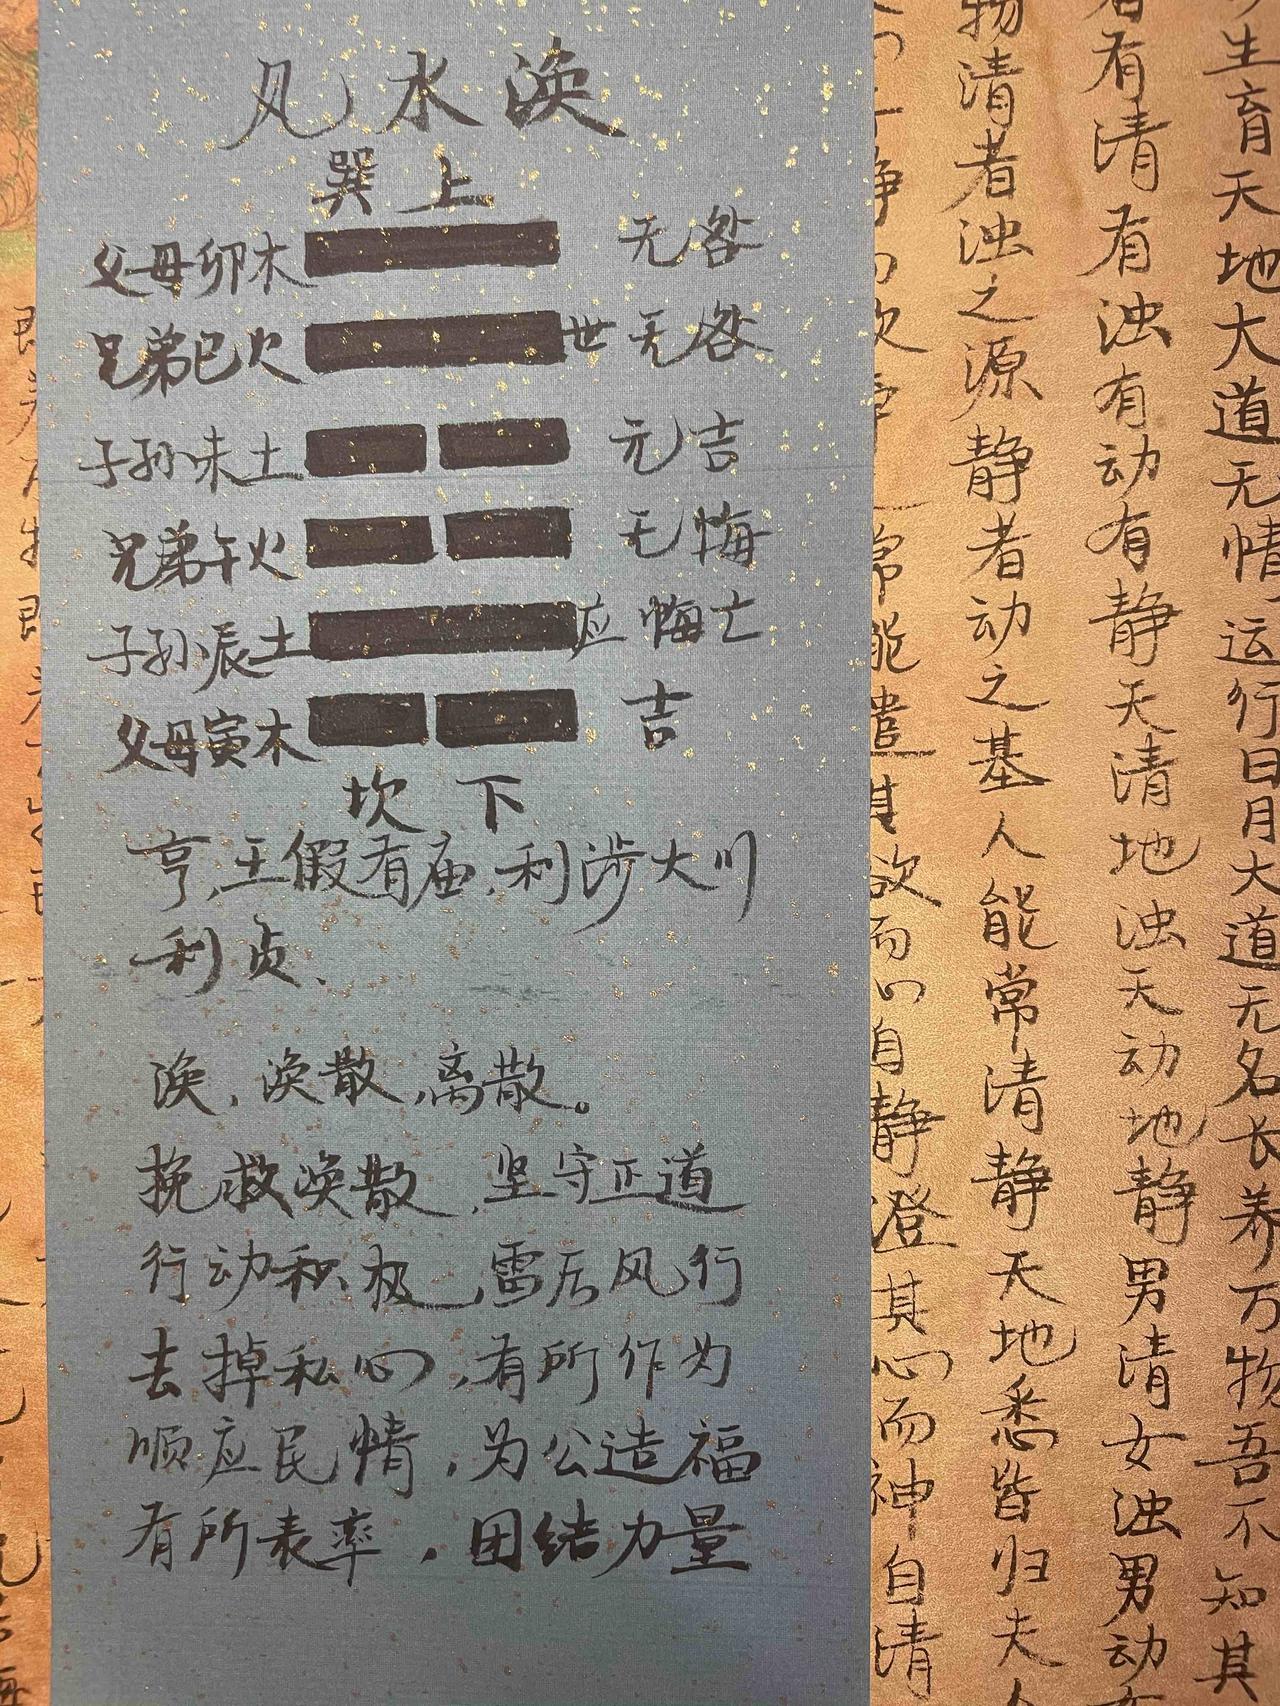 风水涣
巽上
父母卯木 无咎
兄弟巳火 世 无咎
子孙味土 元吉
兄弟午火 无悔
子孙辰土 应 悔亡
父母寅木 吉
坎下
亨,王假有庙,利涉大川
利贞、
涣,涣散,离散。
挽救涣散,坚守正道
行动积极,雷厉风行
去掉私心,有所作为
顺应民情,为公造福
有所表率,团结力量
生育天地大道无情运行日月大道无名长养万物吾不知其
有清有浊有动有静天清地浊天动地静男清女浊男动
物清者浊之源静者动之基人能常清静天地悉皆归夫人
常能遣其欲而心自静澄其心而神自清